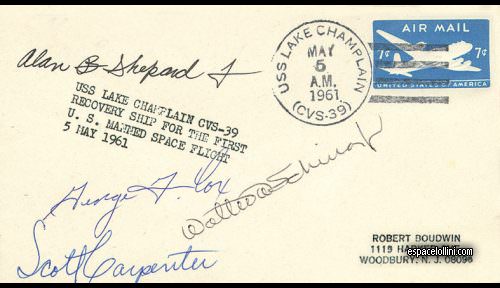 Alan B Shepard Jr
USS LAKE CHAMPLAIN
MAY
5
A.M.
1961
(CVS-39)
AIR MAIL
7¢ 7¢
UNITED STATES OF AMERICA
USS LAKE CHAMPLAIN CVS-39
RECOVERY SHIP FOR THE FIRST
U. S. MANNED SPACE FLIGHT
5 MAY 1961
George F. Cox
Walter M Schirra Jr
Scott Carpenter
ROBERT BOUDWIN
1119
espacelollini.com
WOODBURY, N. J.